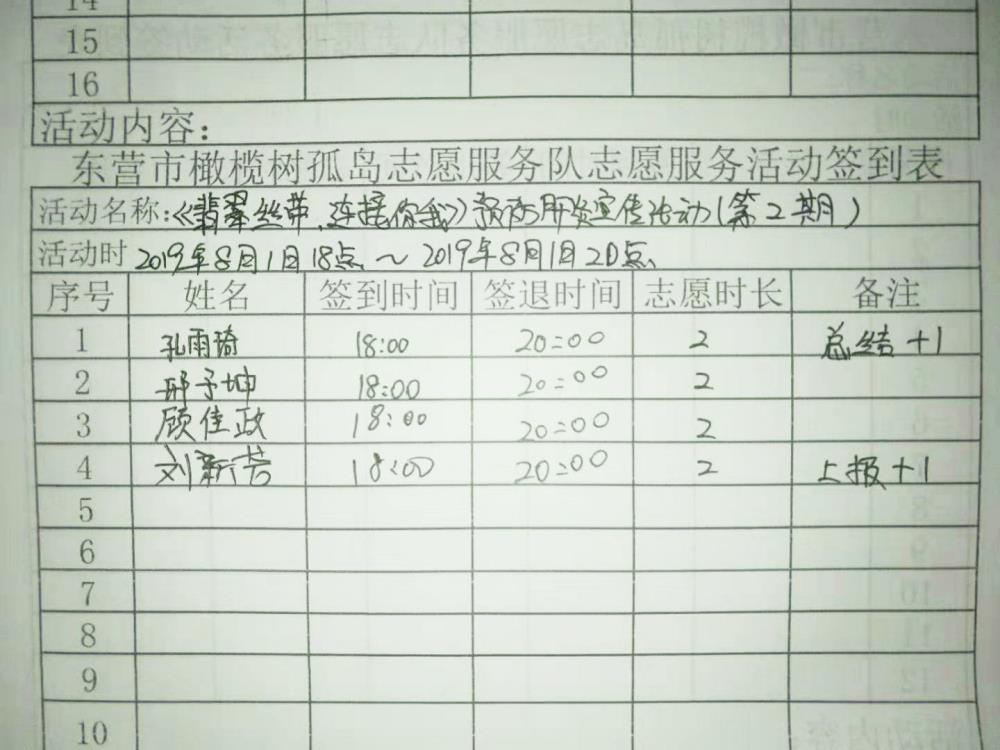 14
15
16
活动内容：
东营市橄榄树孤岛志愿服务队志愿服务活动签到表
活动名称：《翡翠丝带，连接你我》预防肝炎宣传活动（第2期）
活动时 2019年8月1日18点～2019年8月1日20点
序号 姓名 签到时间 签退时间 志愿时长 备注
1 孔雨琦 18:00 20:00 2 总结+1
2 邢子坤 18:00 20:00 2
3 顾佳政 18:00 20:00 2
4 刘新芳 18:00 20:00 2 上报+1
5
6
7
8
9
10